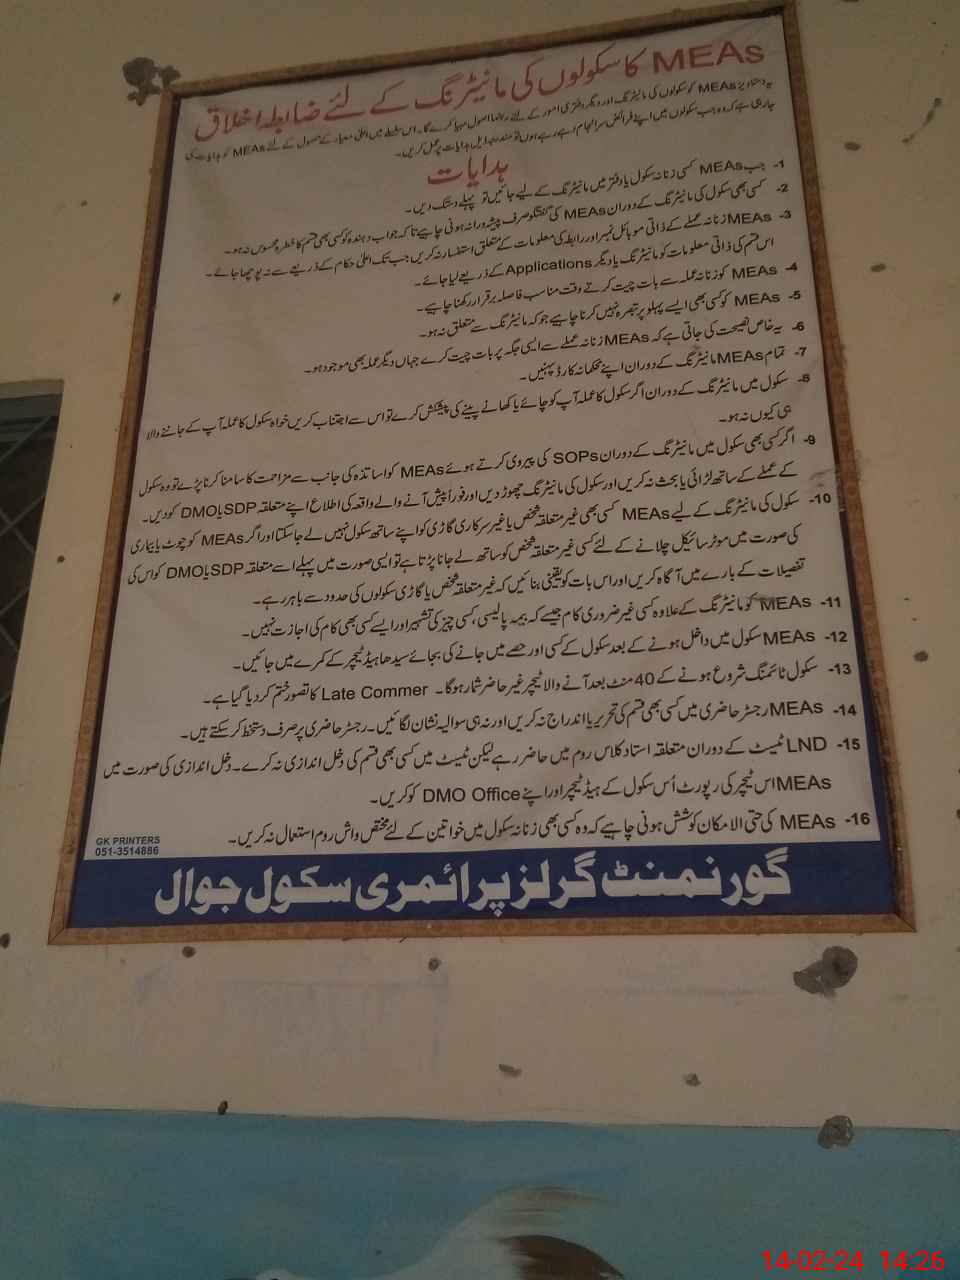 MEAs کا سکولوں کی مانیٹرنگ کے لئے ضابطہ اخلاق
یہ دستاویز MEAs کو سکولوں کی مانیٹرنگ اور دیگر دفتری امور کے لئے رہنما اصول مہیا کرے گا۔ اس سلسلے میں اعلیٰ معیار کے حصول کے لئے MEAs کو ہدایات کی
جا رہی ہے کہ وہ جب سکولوں میں اپنے فرائض سرانجام دے رہے ہوں تو مندرجہ ذیل ہدایات پر عمل کریں۔
ہدایات
1- جب MEAs کسی زنانہ سکول یا دفتر میں مانیٹرنگ کے لیے جائیں تو پہلے دستک دیں۔
2- کسی بھی سکول کی مانیٹرنگ کے دوران MEAs کی گفتگو صرف پیشہ ورانہ ہونی چاہیے تاکہ جواب دہندہ کو کسی بھی قسم کا خطرہ محسوس نہ ہو۔
3- MEAs زنانہ عملے کے ذاتی موبائل نمبر اور رابطہ کی معلومات کے متعلق استفسار نہ کریں جب تک اعلیٰ حکام کے ذریعے سے نہ پوچھا جائے۔
اس قسم کی ذاتی معلومات کو مانیٹرنگ یا دیگر Applications کے ذریعے لیا جائے۔
4- MEAs کو زنانہ عملہ سے بات چیت کرتے وقت مناسب فاصلہ برقرار رکھنا چاہیے۔
5- MEAs کو کسی بھی ایسے پہلو پر تبصرہ نہیں کرنا چاہیے جو کہ مانیٹرنگ سے متعلق نہ ہو۔
6- یہ خاص نصیحت کی جاتی ہے کہ MEAs زنانہ عملے سے ایسی جگہ پر بات چیت کرے جہاں دیگر عملہ بھی موجود ہو۔
7- تمام MEAs مانیٹرنگ کے دوران اپنے محکمانہ کارڈ پہنیں۔
8- سکول میں مانیٹرنگ کے دوران اگر سکول کا عملہ آپ کو چائے یا کھانے پینے کی پیشکش کرے تو اس سے اجتناب کریں خواہ سکول کا عملہ آپ کے جاننے والا
ہی کیوں نہ ہو۔
9- اگر کسی بھی سکول میں مانیٹرنگ کے دوران SOPs کی پیروی کرتے ہوئے MEAs کو اساتذہ کی جانب سے مزاحمت کا سامنا کرنا پڑے تو وہ سکول
کے عملے کے ساتھ لڑائی یا بحث نہ کریں اور سکول کی مانیٹرنگ چھوڑ دیں اور فوراً پیش آنے والے واقعہ کی اطلاع اپنے متعلقہ SDP یا DMO کو دیں۔
10- سکول کی مانیٹرنگ کے لیے MEAs کسی بھی غیر متعلقہ شخص یا غیر سرکاری گاڑی کو اپنے ساتھ سکول نہیں لے جا سکتا اور اگر MEAs کو چوٹ یا بیماری
کی صورت میں موٹر سائیکل چلانے کے لئے کسی غیر متعلقہ شخص کو ساتھ لے جانا پڑتا ہے تو ایسی صورت میں پہلے اسے متعلقہ SDP یا DMO کو اس کی
تفصیلات کے بارے میں آگاہ کریں اور اس بات کو یقینی بنائیں کہ غیر متعلقہ شخص یا گاڑی سکولوں کی حدود سے باہر رہے۔
11- MEAs کو مانیٹرنگ کے علاوہ کسی غیر ضروری کام جیسے کہ بیمہ پالیسی، کسی چیز کی تشہیر اور ایسے کسی بھی کام کی اجازت نہیں۔
12- MEAs سکول میں داخل ہونے کے بعد سکول کے کسی اور حصے میں جانے کی بجائے سیدھا ہیڈ ٹیچر کے کمرے میں جائیں۔
13- سکول ٹائمنگ شروع ہونے کے 40 منٹ بعد آنے والا ٹیچر غیر حاضر شمار ہوگا۔ Late Commer کا تصور ختم کر دیا گیا ہے۔
14- MEAs رجسٹر حاضری میں کسی بھی قسم کی تحریر یا اندراج نہ کریں اور نہ ہی سوالیہ نشان لگائیں۔ رجسٹر حاضری پر صرف دستخط کر سکتے ہیں۔
15- LND ٹیسٹ کے دوران متعلقہ استاد کلاس روم میں حاضر رہے لیکن ٹیسٹ میں کسی بھی قسم کی دخل اندازی نہ کرے۔ دخل اندازی کی صورت میں
MEAs اس ٹیچر کی رپورٹ اُس سکول کے ہیڈ ٹیچر اور اپنے DMO Office کو کریں۔
16- MEAs کی حتی الامکان کوشش ہونی چاہیے کہ وہ کسی بھی زنانہ سکول میں خواتین کے لئے مختص واش روم استعمال نہ کریں۔
GK PRINTERS
051-3514886
گورنمنٹ گرلز پرائمری سکول جوال
14-02-24 14:26